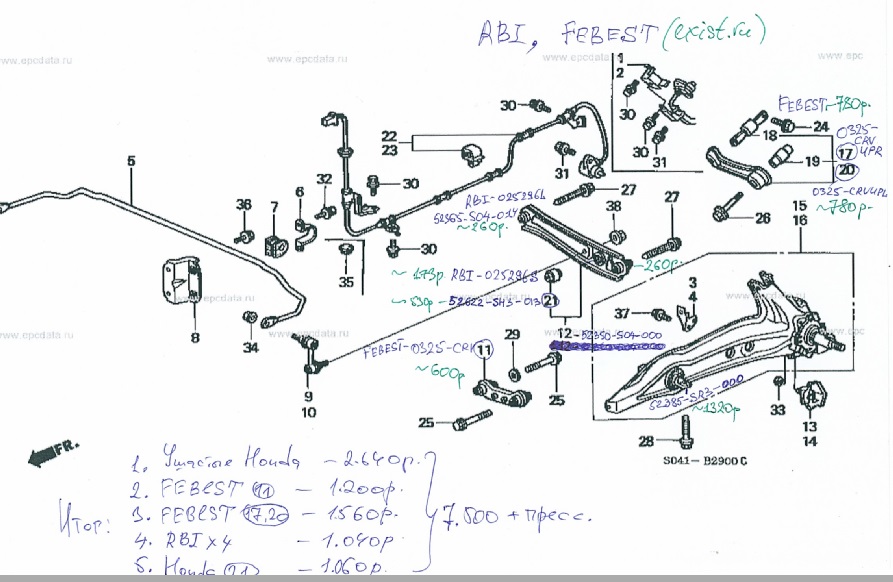 RBI, FEBEST (exist.ru)
www.epcdata.ru
www.epcdata.ru
www.epcdata.ru
1
2
30
30
30
31
FEBEST-780р.
18
24
0325-
CRV
4PR
17
19
20
0325-CRV4PL
~780р.
26
15
16
22
23
30
31
5
32
6
7
36
30
35
30
RBI-025296L
52365-S04-014
~260р.
27
38
27
~260р.
~173р. RBI-025296S
~530р-52622-SH3-013 21
8
34
9
10
12-52350-S04-000
FEBEST-0325-CRV 11
~600р
29
25
25
3
4
37
52385-SR3-000
~1320р
28
33
13
14
S041- B2900 C
FR.
www.epcdata.ru
www.epcdata.ru
www.epcdata.ru
Итог:
1. Honda - 2.640р.
2. FEBEST 11 - 1.200р.
3. FEBEST 17,20 - 1560р.
4. RBI x 4 - 1.040р
5. Honda 21 - 1.060р.
7.500 + пресс.